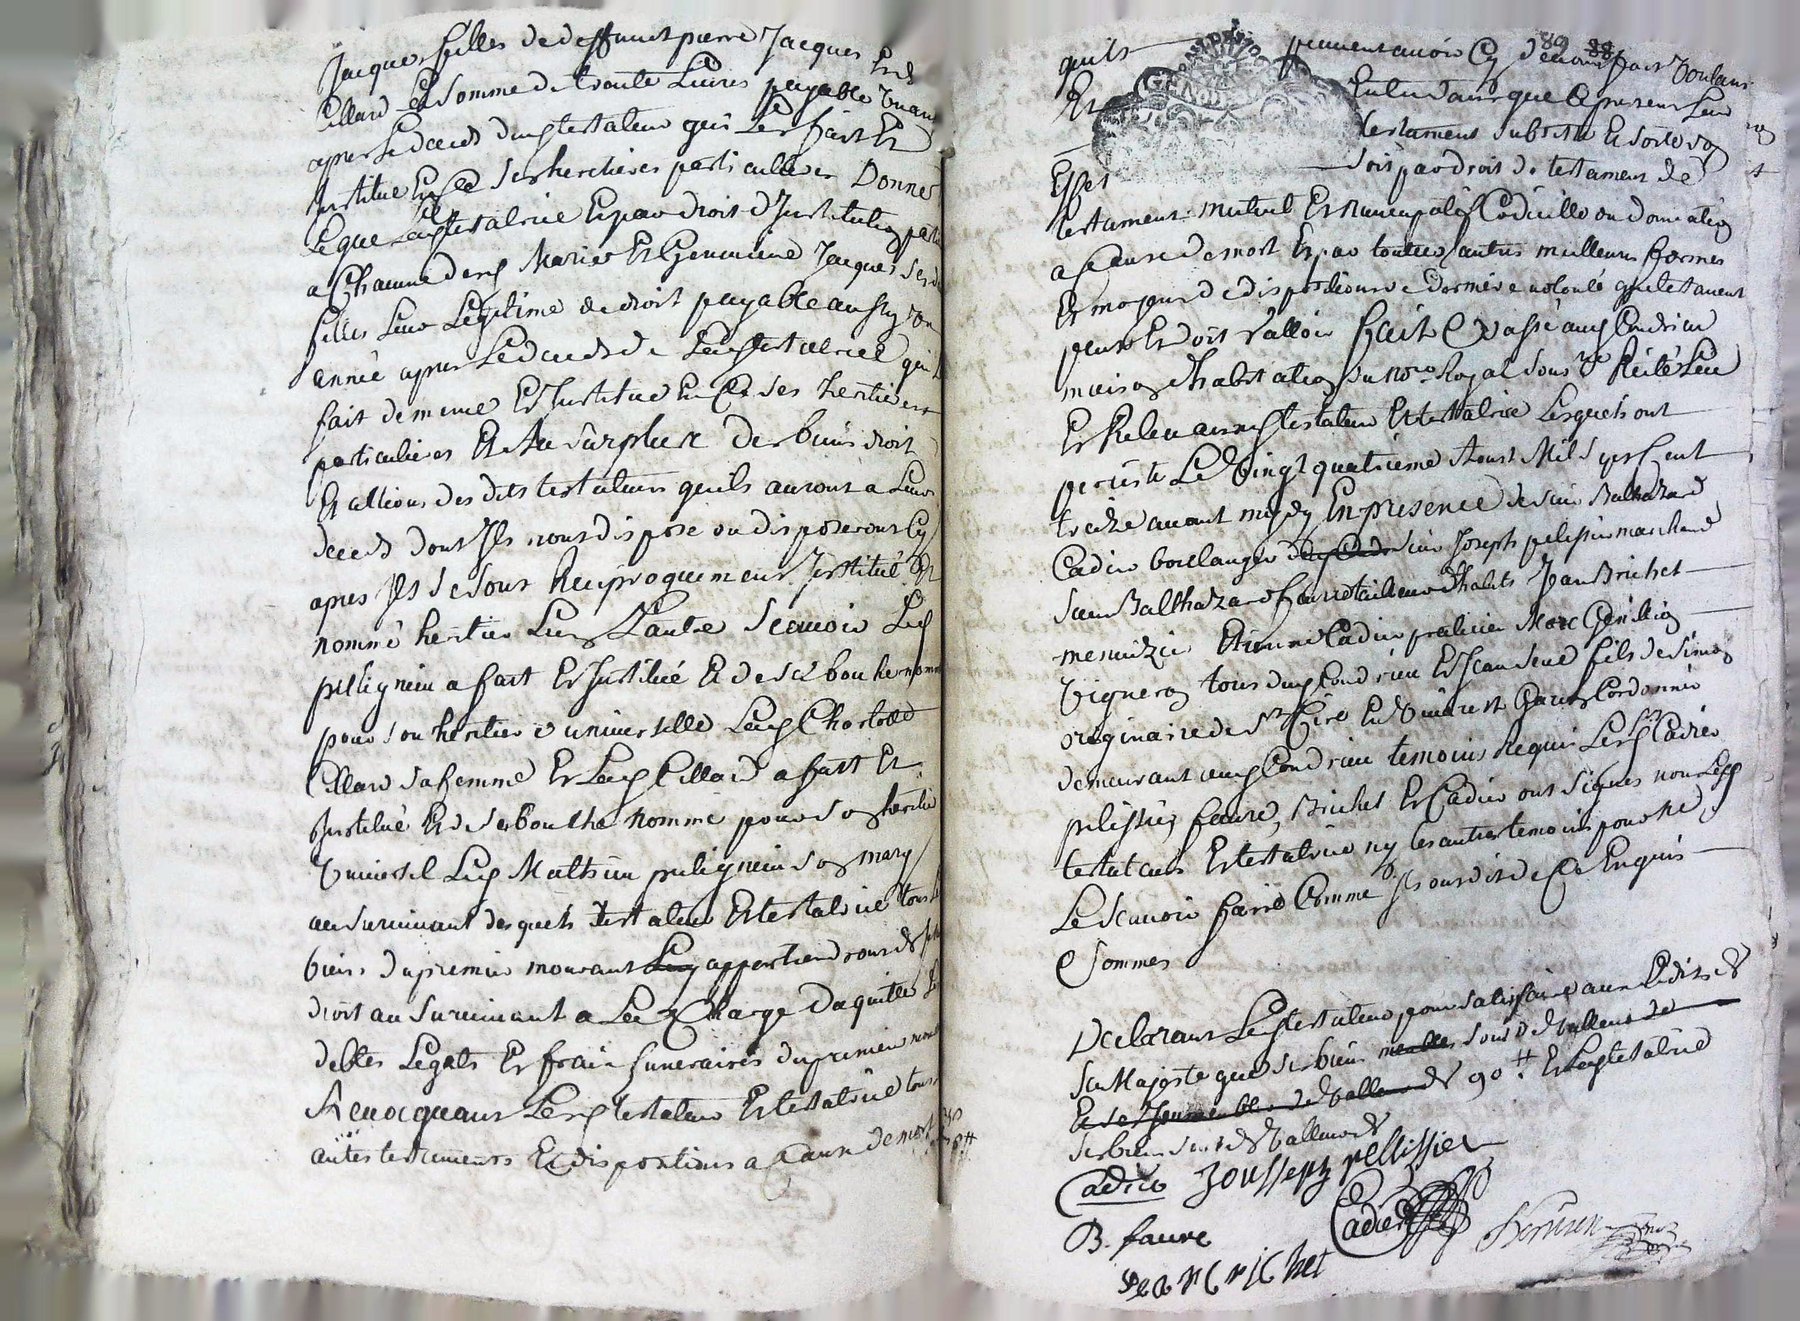 Jacques filles de deffunct pierre Jacques Et de
Cillard La Somme de trante Livres payable Un an
apres Le deced dud testateur qui Les fait Et
Institue En Ce Ses heretieres particullieres Donne
Legue Lad testatrice Et par droit d'Institution
a Chacune desd Marie Et Genevieve Jacques Ses
filles Leur Legitime de droit payable aussy
année apres Le deceds de Lad testatrice qui
fait de meme Et Institue En Ce Ses heritieres
particulieres Et Au Surplux des biens droit
Et actions des dits testateurs quils auront a Leur
deced dont Ils nont dispose ou disposeront Cy
apres Ils Se Sont Reciproquement Institué Et
nommé heritier Lun L'autre Scavoir Led
pelignein a fait Et Institué Et de Sa bouhe nommé
pour Son heritiere universelle Lad Charlotte
Cillard Sa femme Et Lad Cillard a fait Et
Institué Et de Sa bouhe nommé pour Son heritier
Universel Led Mathieu peligneien Son mary
au Survivant desquels testateur Et testatrice tous
biens du premier mourant appartiendront de
droit au Survivant a La Charge Daquitter
debtes Legats Et frais funeraires du premier
Revoquant Lesd testateur Et testatrice tous
autres testaments Et dispositions a Cause de mort
89 88
quils peuvent avoir Cy devant fait Voulant
Et Entendant que Ce present Leur
testament subsiste Et Sorte Son
Effet Soit par droit de testament de
testament mutuel Et Nuncupatif Codicille ou donnation
a Cause de mort Et par toutes autres meilleures formes
Et moyens de disposition de derniere volonté que testament
peut Et doit Valloir fait Et passé aud Condrieu
maison d'habitation du no.re Royal Sous.né Recité Leu
Et Releu auxd testateur Et testatrice Lesquels ont
persisté Le Vingt quatrieme Aoust Mil Sept Cent
treize avant midy En presence de Sieur Balthazard
Cadier boullanger Sieur Joseph pelissier marchand
Sieur Balthazard faure tailleur d'habits Jean Brichet
menuizier Etienne Cadier praticien Marc
Vigneron tous dud Condrieu Et Jean fils de Simon
originaire de St Cire En Vivarest Garçon Cordonnier
demeurant aud Condrieu temoins Requis Lesd Srs Cadier
pelissier, faure, Brichet Et Cadier ont Signés non Lesd
testateur Et testatrice ny Les autres temoins pour ne
Le Scavoir faire Comme Ils ont dit de Ce Enquis
Et Sommes
Declarant Led testateur pour Satisfaire aux Edits de
Sa Majeste que Ses biens Sont de valleur de
de 90 ₶ Et Lad testatrice
Ses biens de valleur de
Cadier Joussepz pellissier
B. faure Cadier
Jean Brichet